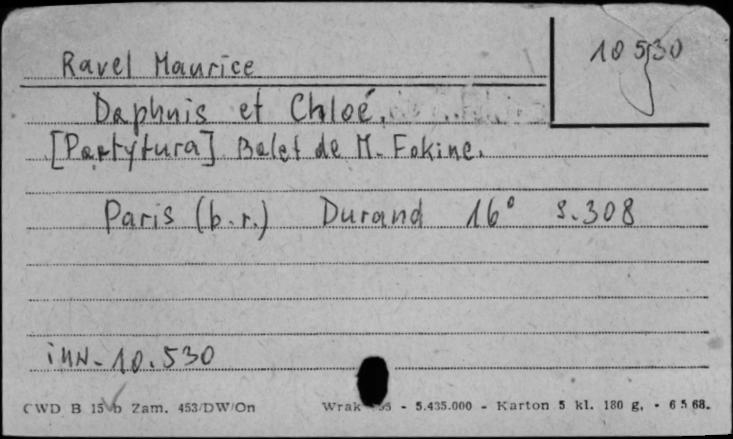 10530
Ravel Maurice
Daphnis et Chloé.
[Partytura] Balet de M. Fokine.
Paris (b.r.) Durand 16° s. 308
inw. 10.530
CWD B 15 b Zam. 453/DW/On - 5.435.000 - Karton 5 kl. 180 g. - 6 5 68.